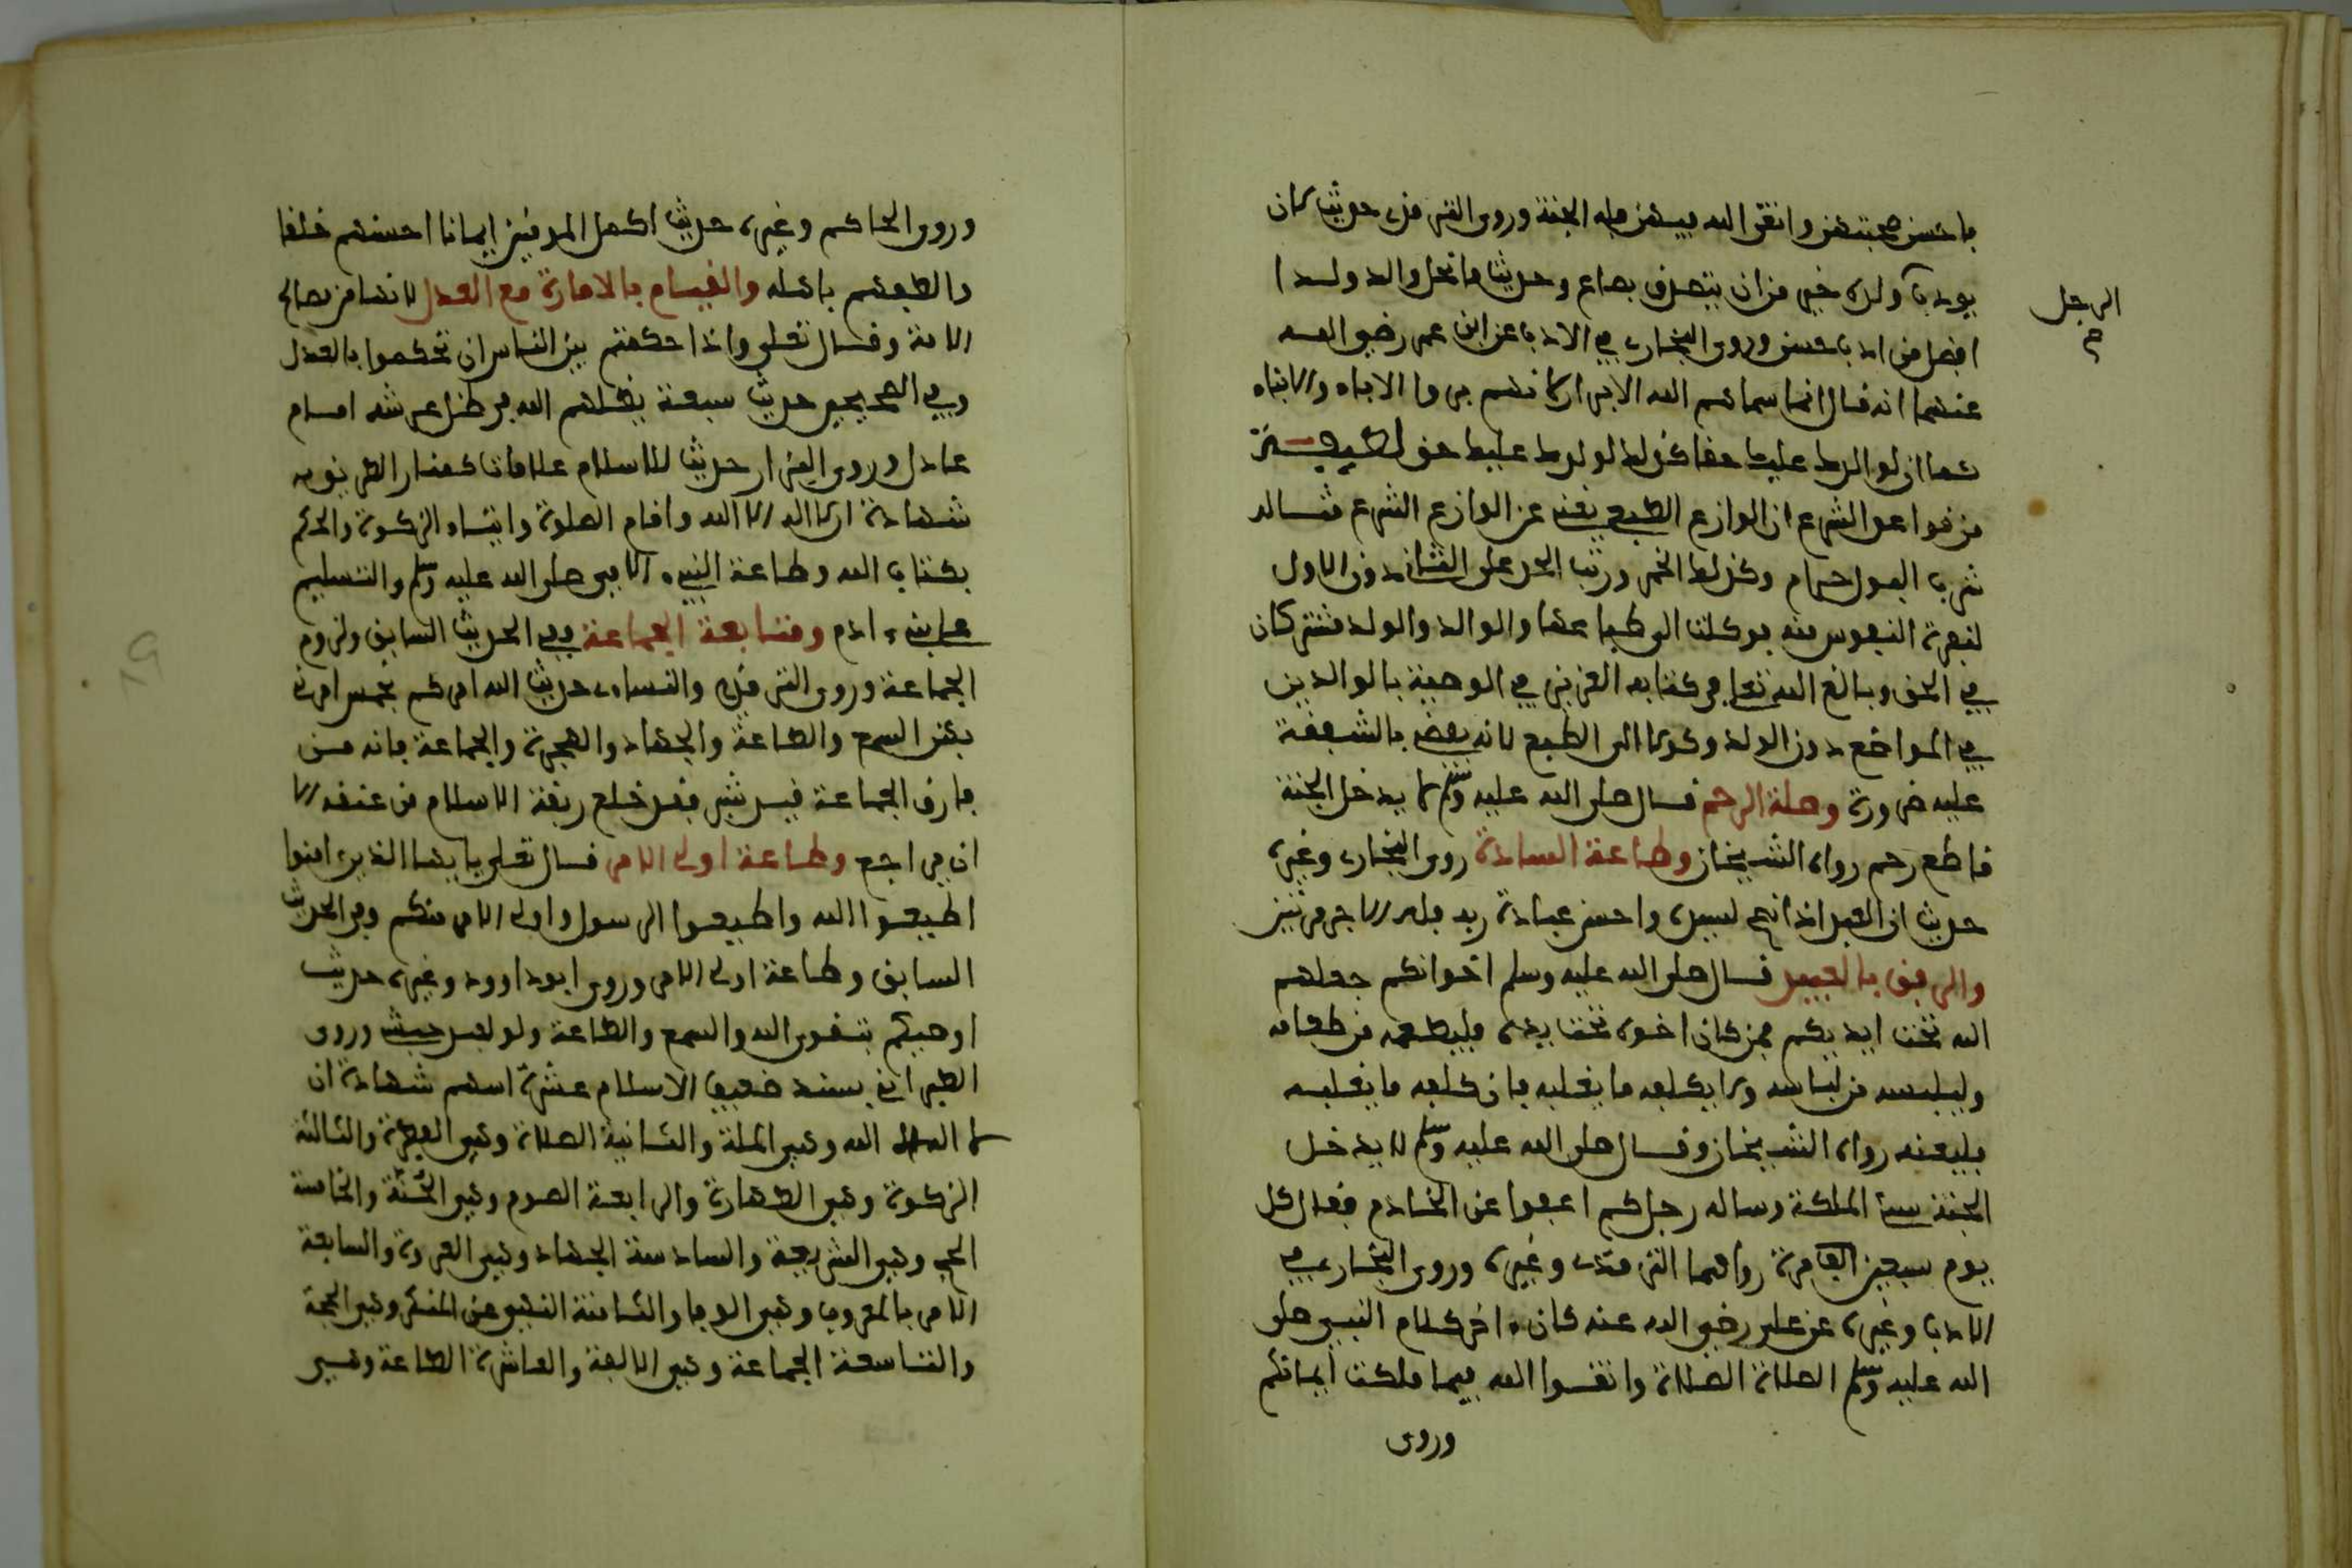 فاحسن صحبتهن واتقى الله فيهن فله الجنة وروى الترمذي حديث لان
يودب ولده خير من ان يتصدق بصاع وحديث ما نحل والد ولدا
الرجل
افضل من ادب حسن وروى البخاري في الادب عن ابن عمر رضي الله
عنهما انه قال انما سماهم الله الابرار لانهم بروا الاباء والابناء
كما ان لوالدك عليك حقا كذلك لولدك عليك حق
من قواعد الشرع ان الوازع الطبيعي يغني عن الوازع الشرعي مثاله
شرب البول حرام وكذلك الخمر ورتب الحد على الثاني دون الاول
لنفرة النفوس منه فوكلت الى طباعها والوالد والولد مشتركان
في الحق وبالغ الله تعالى في كتابه العزيز في الوصية بالوالدين
في المواضع دون الولد وكولا الى الطبع لانه يقضي بالشفقة
عليه ضرورة وصلة الرحم قال صلى الله عليه وسلم لا يدخل الجنة
قاطع رحم رواه الشيخان وطاعة السادة روى البخاري وغيره
حديث ان العبد اذا نصح لسيده واحسن عبادة ربه فله الاجر مرتين
والرفق بالعبيد قال صلى الله عليه وسلم اخوانكم جعلهم
الله تحت ايديكم فمن كان اخوه تحت يده فليطعمه من طعامه
وليلبسه من لباسه ولا يكلفه ما يغلبه فان كلفه ما يغلبه
فليعنه رواه الشيخان وقال صلى الله عليه وسلم لا يدخل
الجنة سيئ الملكة وساله رجل كم اعفوا عن الخادم فقال كل
يوم سبعين مرة رواهما الترمذي وغيره وروى البخاري في
الادب وغيره عن علي رضي الله عنه كان اخر كلام النبي صلى
الله عليه وسلم الصلاة الصلاة واتقوا الله فيما ملكت ايمانكم
وروى
وروى الحاكم وغيره حديث اكمل المومنين ايمانا احسنهم خلقا
والطفهم باهله والقيام بالامارة مع العدل لانها من مصالح
الامة وقال تعلى واذا حكمتم بين الناس ان تحكموا بالعدل
وفي الصحيحين حديث سبعة يظلهم الله في ظل عرشه امام
عادل وروى البزار حديث للاسلام علامات كمنار الطريق
شهادة ان لا اله الا الله واقام الصلوة وايتاء الزكوة والحكم
بكتاب الله وطاعة النبي الامي صلى الله عليه وسلم والتسليم
على بني ادم ومتابعة الجماعة ففي الحديث السابق ولزوم
الجماعة وروى الترمذي والنساءي حديث الله امركم بخمس امرني
بهن السمع والطاعة والجهاد والهجرة والجماعة فانه من
فارق الجماعة قيد شبر فقد خلع ربقة الاسلام من عنقه الا
ان يراجع وطاعة اولى الامر قال تعلى يايها الذين امنوا
اطيعوا الله واطيعوا الرسول واولى الامر منكم وفي الحديث
السابق وطاعة اولى الامر وروى ابو داوود وغيره حديث
اوصيكم بتقوى الله والسمع والطاعة ولو لعبد حبشي وروى
الطبراني بسند ضعيف الاسلام عشرة اسهم شهادة ان
لا اله الا الله وهي الملة والثانية الصلاة وهي الفطرة والثالثة
الزكوة وهي الطهارة والرابعة الصوم وهي الجنة والخامسة
الحج وهي الشريعة والسادسة الجهاد وهي العروة والسابعة
الامر بالمعروف وهي الوفا والثامنة النهي عن المنكر وهي الحجة
والتاسعة الجماعة وهي الالفة والعاشرة الطاعة وهي